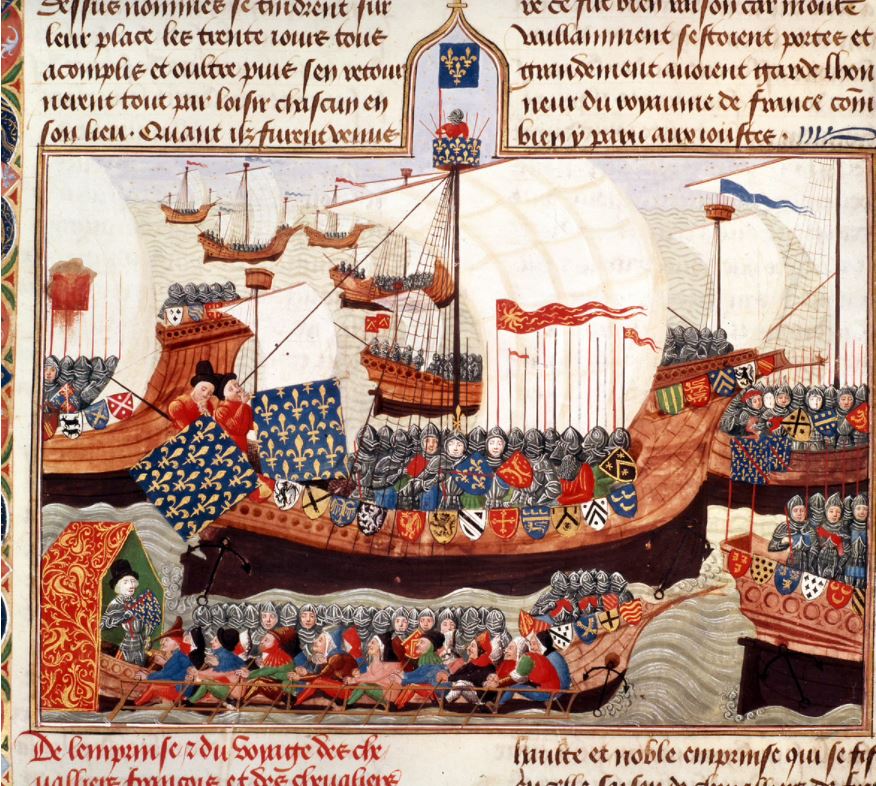 dessus nommes se tindrent sur
leur place les trente iours tous
acomplis et oultre puis sen retour
nerent tout par loisir chascun en
son lieu. Quant ilz furent venus
re ce fut bien raison car moult
vaillamment sestoient portes et
grandement auoient garde lhon
neur du royaume de france com̄
bien y paru aux ioustes.
De lemprinse ⁊ du voyage des che
ualliers francois et des cheualiers
haulte et noble emprinse qui se fist